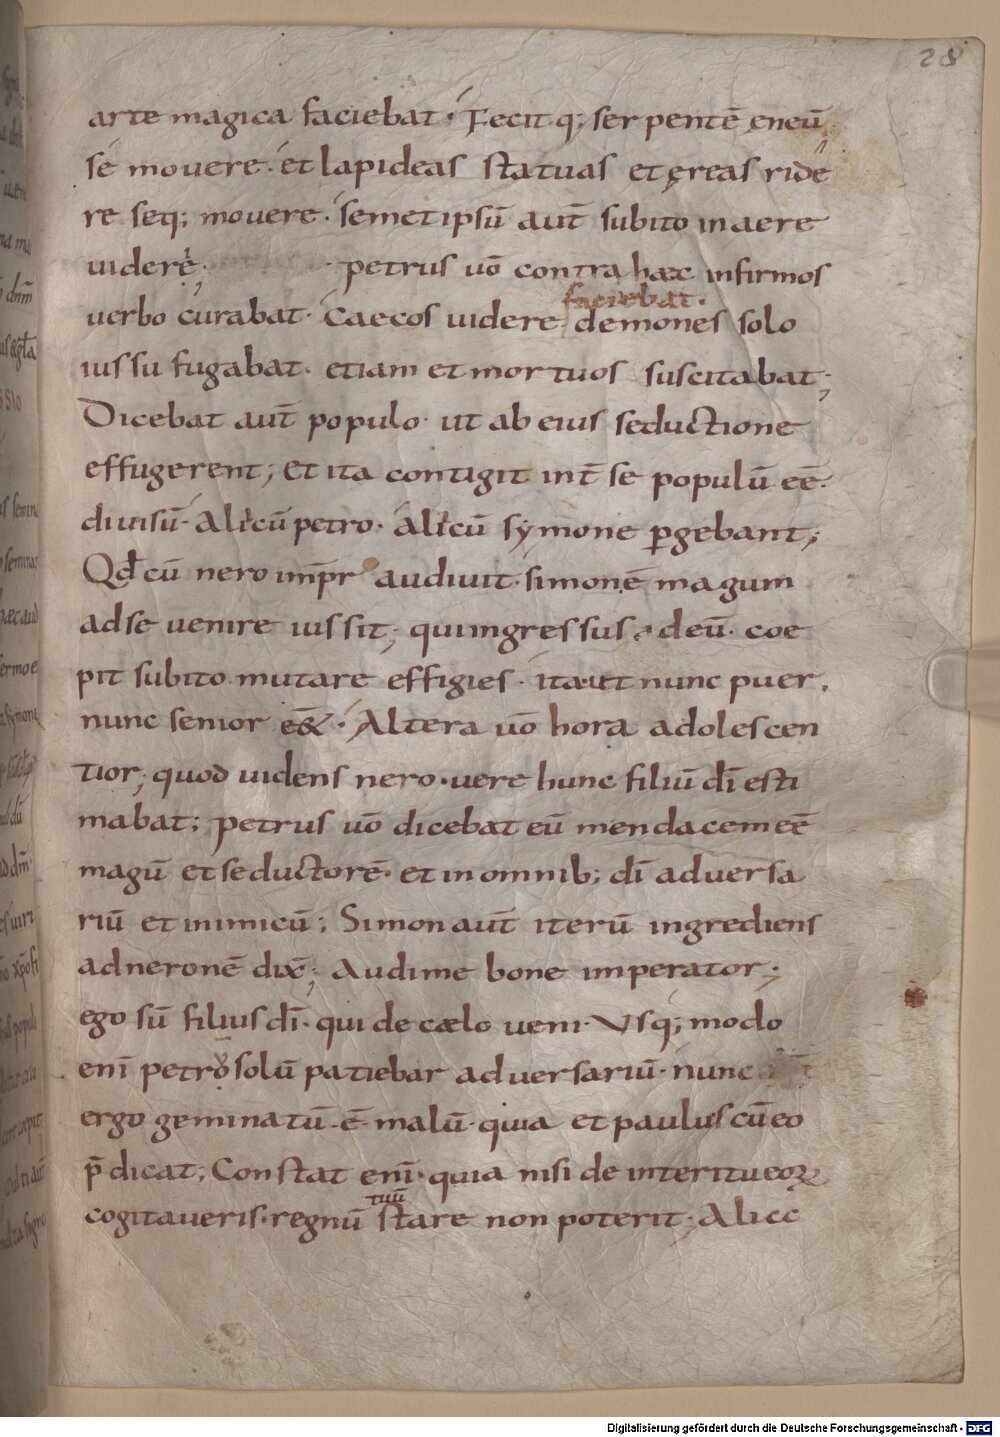 28
arte magica faciebat· Fecitq; serpentē ęneū
sé movere· ét lapideas statuas et ęreas ride
re seq; movere· semetipsū aut̄ subito in aere
viderē; petrus uō contra hæc infirmos
faciebat·
verbo curabat· Caecos videre demones solo
iussu fugabat· etiam et mortuos suscitabat;
Dicebat aut̄ populo· ut ab eius seductione
effugerent; et ita contigit int̄ se populū eē·
divisū· Alii cū petro· alii cū symone ꝑgebant;
Qđ cū nero imp̄r audivit· simonē magum
ad se venire iussit; qui ingressus ad eū· coe
pit subito mutare effigies· ita ut nunc puer,
nunc senior eē&· Altera uō hora adolescen
tior; quod videns nero· vere hunc filiū dī esti
mabat; petrus uō dicebat eū mendacem eē
magū et seductorē· et in omnib; dī adversa
riū et inimicū; Simon aut̄ iterū ingrediens
ad neronē dix̄; Audi me bone imperator;
ego sū filius dī· qui de cælo veni· Vsq; modo
enī petrō solū patiebar adversariū· nunc
ergo geminatū· ē· malū· quia et paulus cū eo
p̄dicat; Constat enī· quia nisi de interitu eoꝝ
tuū
cogitaveris· regnū stare non poterit· Alicc
Digitalisierung gefördert durch die Deutsche Forschungsgemeinschaft - DFG